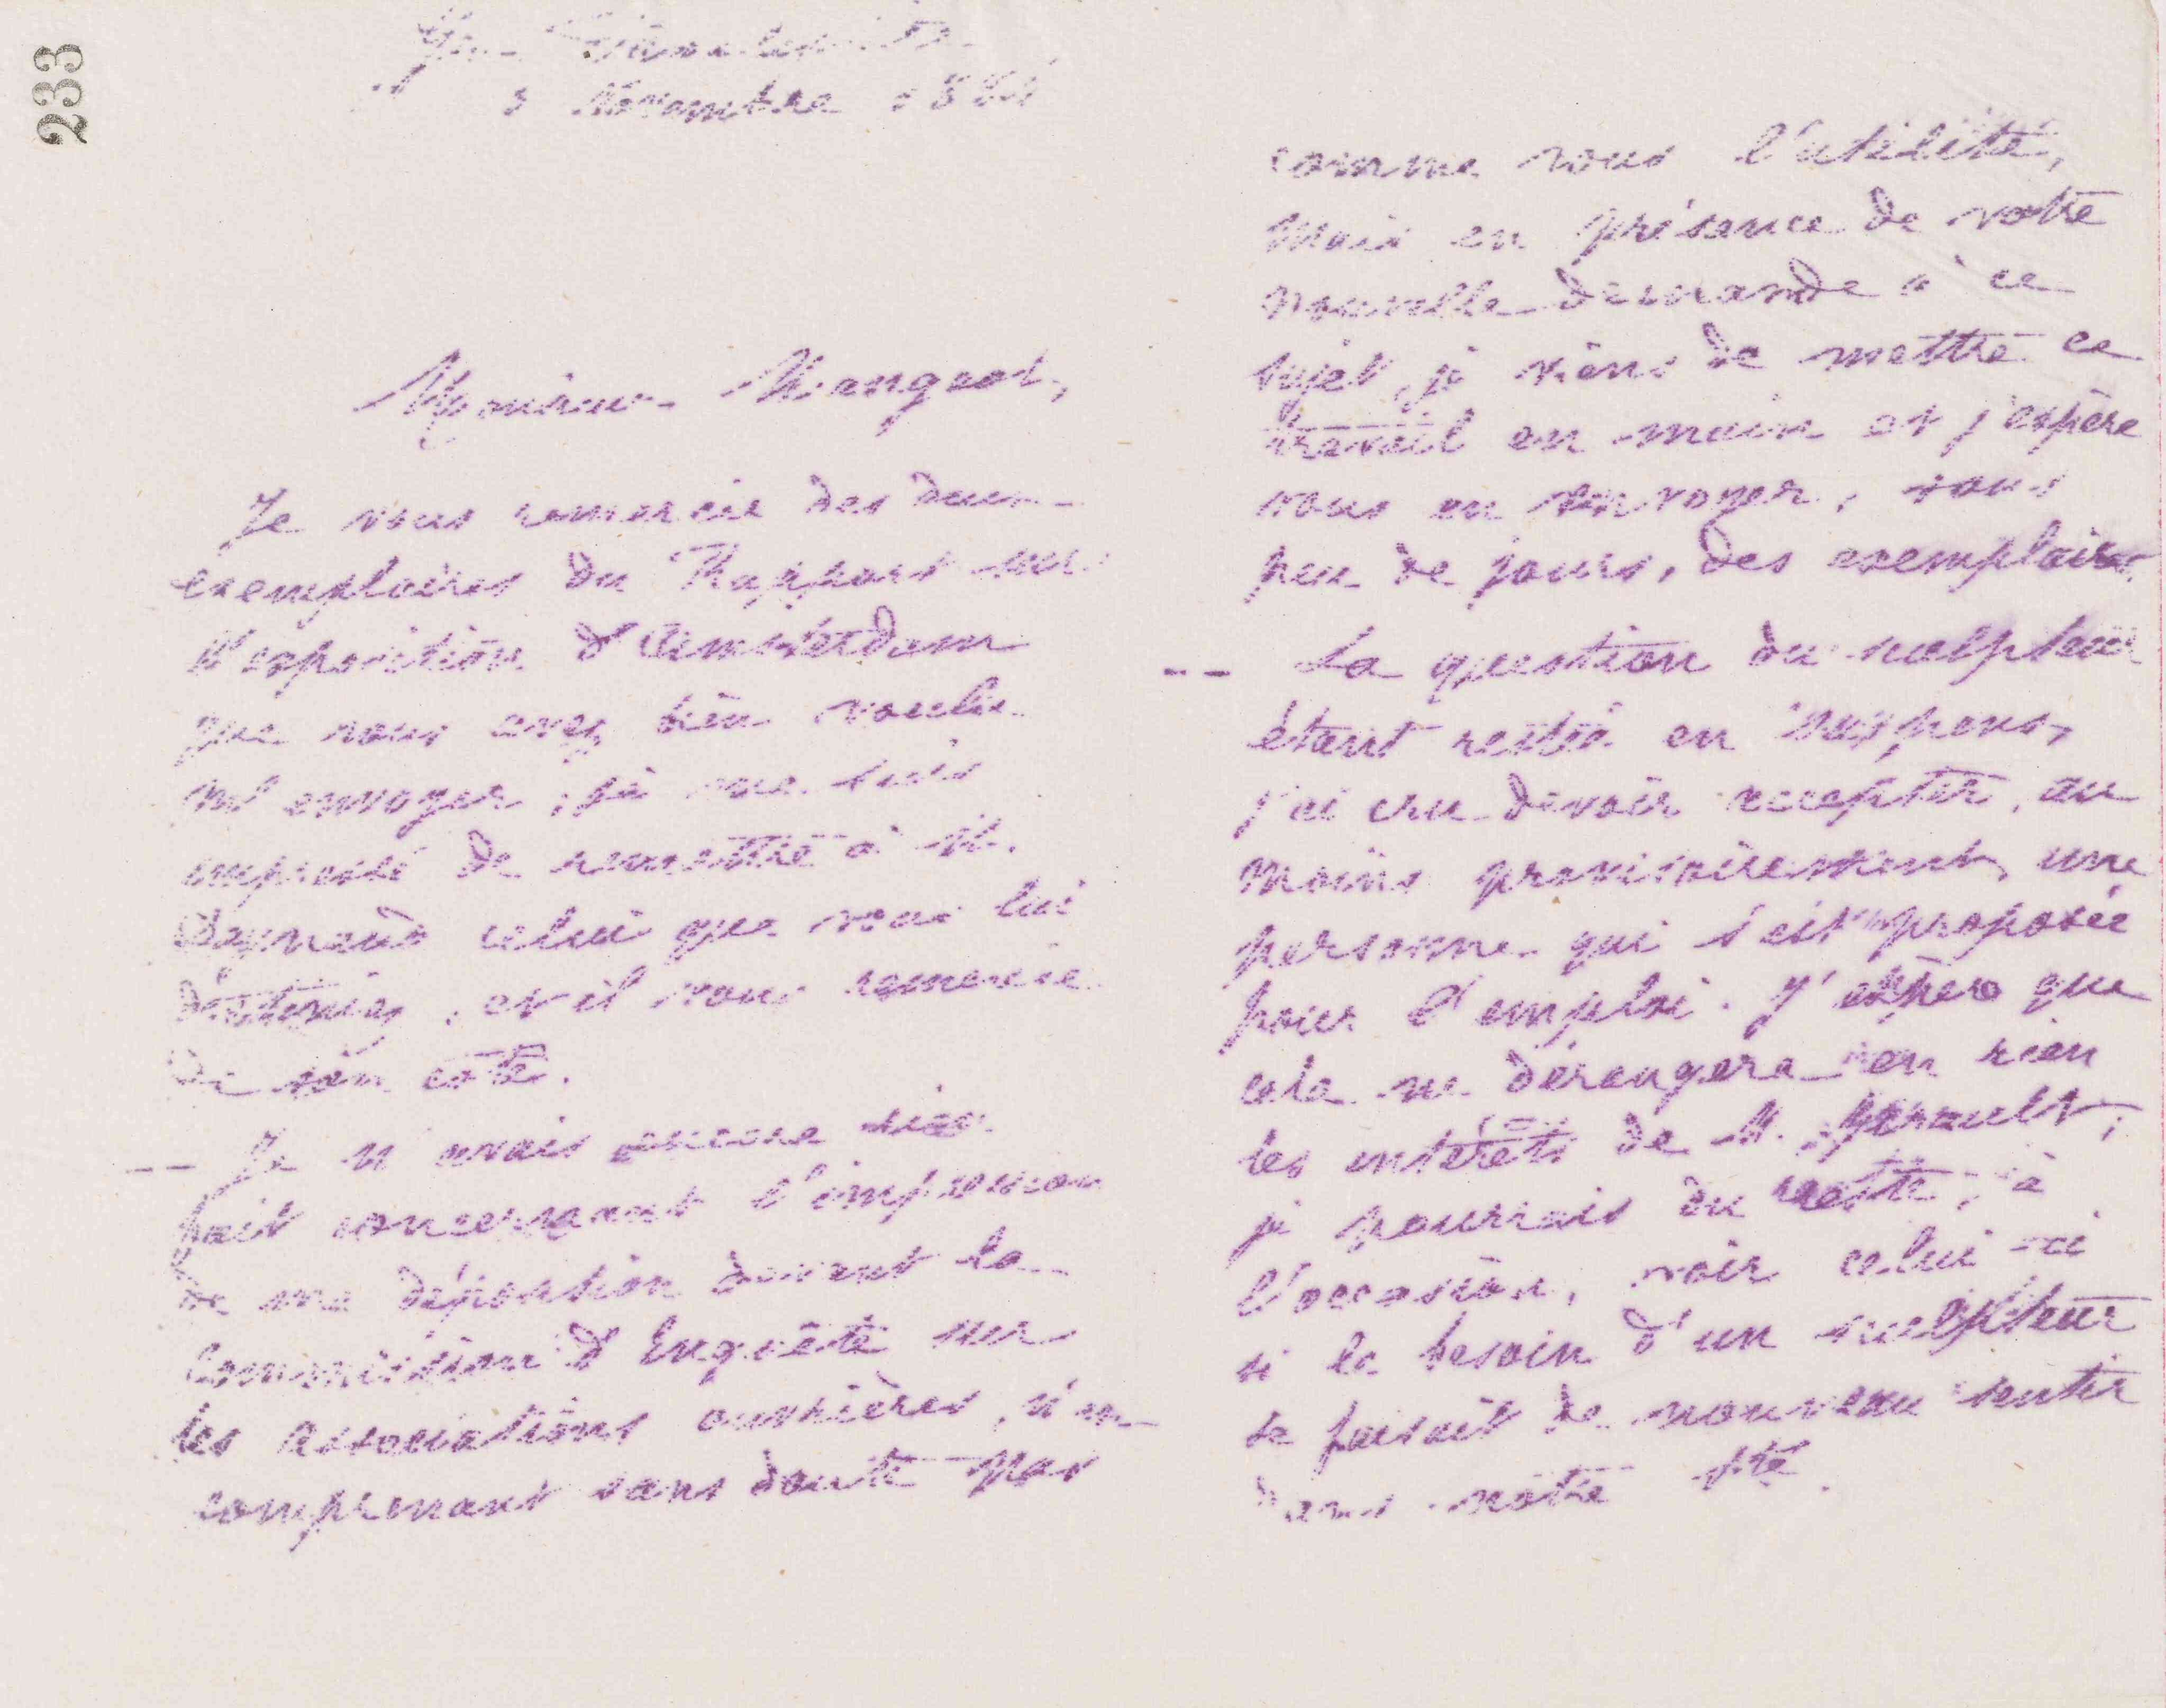 233
Novembre 188
Monsieur Mangeot,
Je vous remercie des deux
exemplaires du Rapport sur
l'exposition d'Amsterdam
que vous avez bien voulu
m'envoyer ; je me suis
empressé de remettre à M.
celui que vous lui
destiniez, et il vous remercie
de son côté.
-- Je n'avais encore rien
fait concernant l'impression
de ma déposition devant la
Commission d'Enquête sur
les associations ouvrières, n'en
comprenant sans doute pas
comme vous l'utilité,
mais en présence de votre
nouvelle demande à ce
sujet, je viens de mettre ce
travail en main et j'espère
vous en envoyer, sous
peu de jours, des exemplaires.
-- La question du sculpteur
étant restée en suspens,
j'ai cru devoir accepter, au
moins provisoirement, une
personne qui s'est proposée
pour l'emploi. J'espère que
cela ne dérangera en rien
les intérêts de M.
je pourrais du reste, à
l'occasion, voir celui-ci
si le besoin d'un sculpteur
se faisait de nouveau sentir
dans notre Sté.